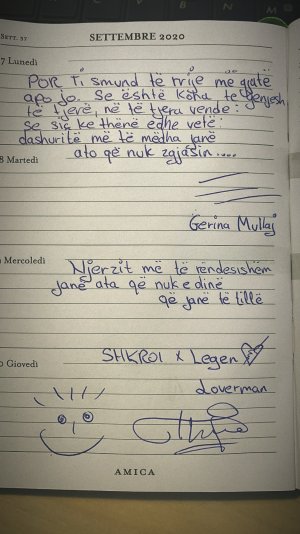 SETT. 37
SETTEMBRE 2020
7 Lunedì
POR Ti smund të rrije më gjatë
apo jo. Se është koha te gënjesh
të tjerë, në të tjera vende:
se siç ke thënë edhe vetë:
dashuritë më të mëdha janë
ato që nuk zgjasin....
8 Martedì
Gerina Mullaj
Mercoledì
Njerzit më të rëndesishëm
janë ata që nuk e dinë
që janë të tillë
Giovedì
SHKROI x Legen
Loverman
AMICA